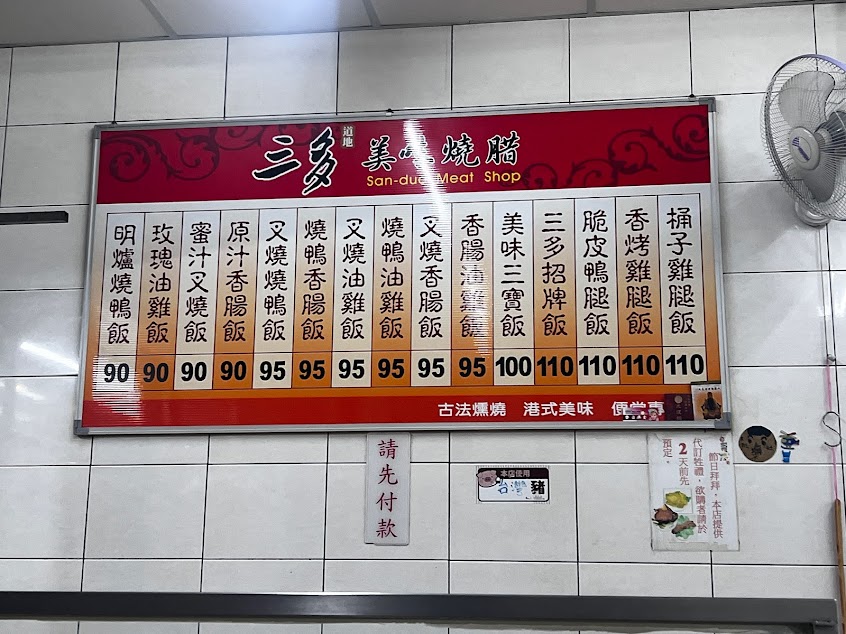 三多 道地 美味燒腊
San-duo Meat Shop
明爐燒鴨飯 90
玫瑰油雞飯 90
蜜汁叉燒飯 90
原汁香腸飯 90
叉燒燒鴨飯 95
燒鴨香腸飯 95
叉燒油雞飯 95
燒鴨油雞飯 95
叉燒香腸飯 95
香腸油雞飯 95
美味三寶飯 100
三多招牌飯 110
脆皮鴨腿飯 110
香烤雞腿飯 110
桶子雞腿飯 110
古法燻燒 港式美味 便當專
請先付款
本店使用
台灣豬
節日拜拜,本店提供
代訂牲禮,欲購者請於
2天前先
預定。